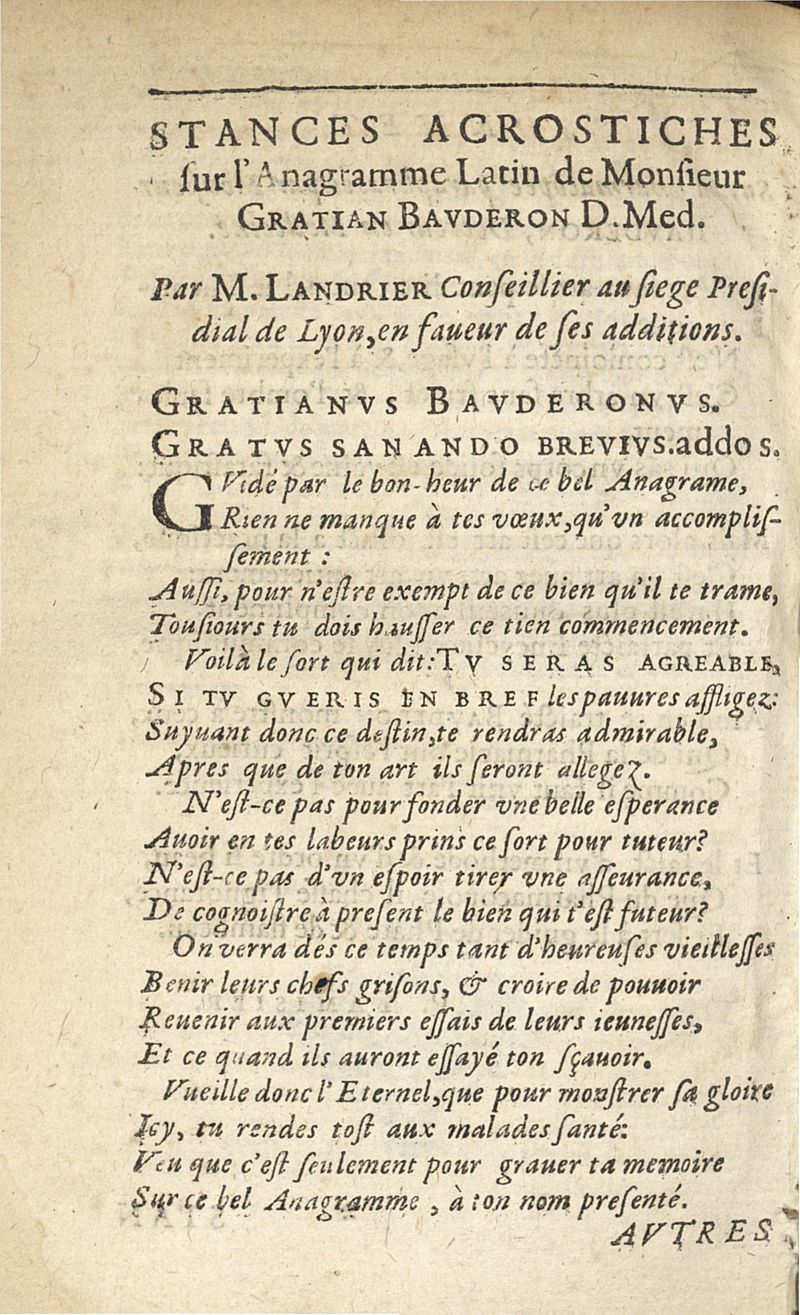 STANCES ACROSTICHES
ſur l'Anagramme Latin de Monſieur
GRATIAN BAVDERON D.Med.
Par M. LANDRIER Conſeillier au ſiege Preſi-
dial de Lyon, en faueur de ſes additions.
GRATIANVS BAVDERONVS.
GRATVS SANANDO BREVIVS.addo s.
GVidé par le bon-heur de ce bel Anagrame,
Rien ne manque à tes vœux, qu'vn accompliſ-
ſement :
Auſſi, pour n'eſtre exempt de ce bien qu'il te trame,
Touſiours tu dois hauſſer ce tien commencement.
Voilà le ſort qui dit: TV SERAS AGREABLE,
SI TV GVERIS EN BREF les pauures affligez:
Suyuant donc ce deſtin, te rendras admirable,
Apres que de ton art ils ſeront allegez.
N'eſt-ce pas pour fonder vne belle eſperance
Auoir en tes labeurs prins ce ſort pour tuteur?
N'eſt-ce pas d'vn eſpoir tirer vne aſſeurance,
De cognoiſtre à preſent le bien qui t'eſt futeur?
On verra dés ce temps tant d'heureuſes vieilleſſes
Benir leurs chefs griſons, & croire de pouuoir
Reuenir aux premiers eſſais de leurs ieuneſſes,
Et ce quand ils auront eſſayé ton ſçauoir.
Vueille donc l'Eternel, que pour monſtrer ſa gloire
Icy, tu rendes toſt aux malades ſanté:
Veu que c'eſt ſeulement pour grauer ta memoire
Sur ce bel Anagramme, à ton nom preſenté.
AVTRES